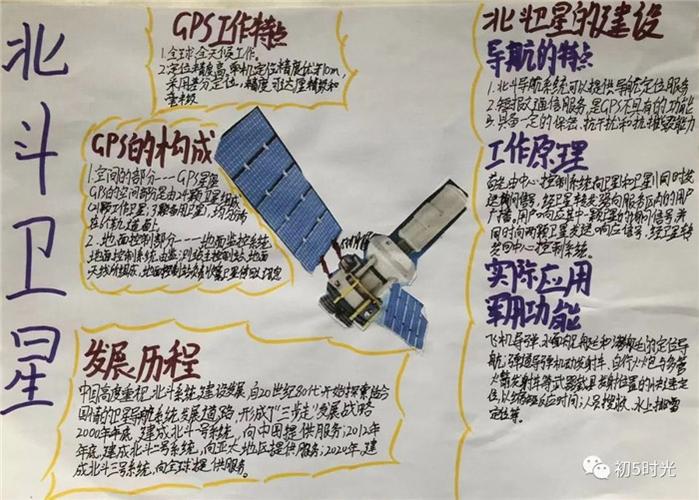 北斗卫星
GPS工作特点
1.全球全天候工作。
2.定位精度高,单机定位精度优于10m,
采用差分定位,精度可达厘米级和
毫米级
GPS的构成
1.空间的部分---GPS星座
GPS的空间部份是由24颗卫星组成
(21颗工作卫星;3颗备用卫星),均匀分布
在6个轨道面上
2.地面控制部分----地面监控系统
地面控制系统由监测站主控制站,地面
发展历程
中国高度重视北斗系统建设发展,自20世纪80年代开始探索适合
国情的卫星导航系统发展道路,形成了“三步走”发展战略
2000年年底,建成北斗一号系统,向中国提供服务;2012年
年底,建成北斗二号系统,向亚太地区提供服务;2020年,建
成北斗三号系统,向全球提供服务。
北斗卫星的建设
导航的特点
1.北斗导航系统可以提供导航定位服务
2.短报文通信服务,是GPS不具有的功能
3.具备一定的保密、抗干扰和抗摧毁能力
工作原理
首先由中心控制系统向卫星Ⅰ和卫星Ⅱ同时发
送询问信号,经卫星转发器向服务区内的用
户广播,用户响应其中一颗卫星的询问信号,并
同时向两颗卫星发送响应信号,经卫星转
发回中心控制系统。
实际应用
军用功能
飞机、导弹、水面舰艇和潜艇的定位导
航;弹道导弹机动发射车、自行火炮与多管
火箭发射车等武器载具发射位置的快速定
位,以缩短反应时间;人员搜救、水上排雷
定位等。
初5时光